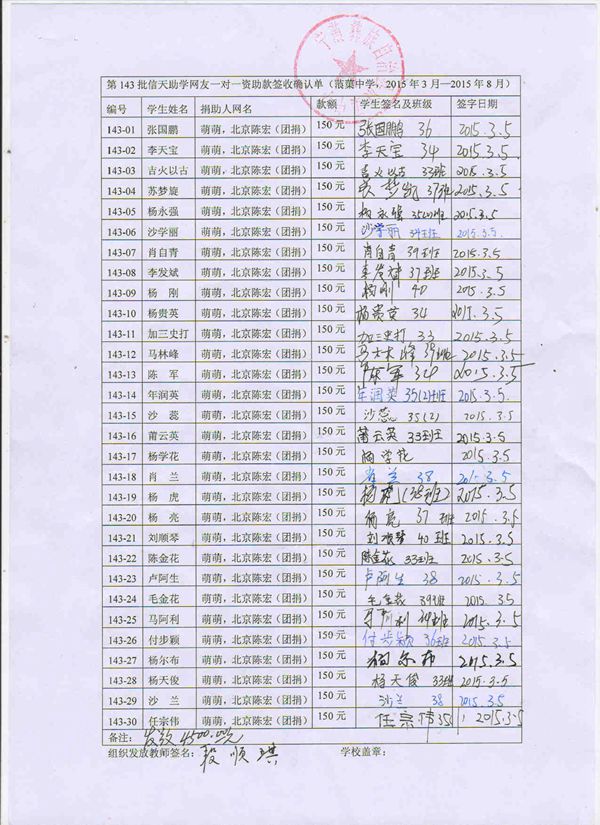 宁蒗彝族自
第 143 批信天助学网友一对一资助款签收确认单（蒗蕖中学，2015 年 3 月—2015 年 8 月）
编号 学生姓名 捐助人网名 款额 学生签名及班级 签字日期
143-01 张国鹏 萌萌，北京陈宏（团捐） 150 元 张国鹏 36 2015.3.5
143-02 李天宝 萌萌，北京陈宏（团捐） 150 元 李天宝 34 2015.3.5
143-03 吉火以古 萌萌，北京陈宏（团捐） 150 元 吉火以古 33班 2015.3.5
143-04 苏梦旋 萌萌，北京陈宏（团捐） 150 元 37班 2015.3.5
143-05 杨永强 萌萌，北京陈宏（团捐） 150 元 杨永强 2015.3.5
143-06 沙学丽 萌萌，北京陈宏（团捐） 150 元 沙学丽 34班 2015.3.5.
143-07 肖自青 萌萌，北京陈宏（团捐） 150 元 肖自青 39班 2015.3.5
143-08 李发斌 萌萌，北京陈宏（团捐） 150 元 李发斌 37班 2015.3.5
143-09 杨　刚 萌萌，北京陈宏（团捐） 150 元 杨刚 40 2015.3.5
143-10 杨贵英 萌萌，北京陈宏（团捐） 150 元 杨贵英 34 2015.3.5
143-11 加三史打 萌萌，北京陈宏（团捐） 150 元 加三史打 33 2015.3.5
143-12 马林峰 萌萌，北京陈宏（团捐） 150 元 马林峰 39班 2015.3.5
143-13 陈　军 萌萌，北京陈宏（团捐） 150 元 陈军 2015.3.5
143-14 年润英 萌萌，北京陈宏（团捐） 150 元 年润英 35(2)班 2015.3.5.
143-15 沙　蕊 萌萌，北京陈宏（团捐） 150 元 沙蕊 35(2) 2015.3.5
143-16 莆云英 萌萌，北京陈宏（团捐） 150 元 莆云英 33班 2015.3.5
143-17 杨学花 萌萌，北京陈宏（团捐） 150 元 杨学花 2015.3.5
143-18 肖　兰 萌萌，北京陈宏（团捐） 150 元 肖兰 38 2015.3.5
143-19 杨　虎 萌萌，北京陈宏（团捐） 150 元 杨虎(38班) 2015.3.5
143-20 杨　亮 萌萌，北京陈宏（团捐） 150 元 杨亮 37班 2015.3.5
143-21 刘顺琴 萌萌，北京陈宏（团捐） 150 元 刘顺琴 40班 2015.3.5
143-22 陈金花 萌萌，北京陈宏（团捐） 150 元 陈金花 33班 2015.3.5
143-23 卢阿生 萌萌，北京陈宏（团捐） 150 元 卢阿生 38 2015.3.5
143-24 毛金花 萌萌，北京陈宏（团捐） 150 元 毛金花 39班 2015.3.5
143-25 马阿利 萌萌，北京陈宏（团捐） 150 元 马阿利 39班 2015.3.5
143-26 付步颖 萌萌，北京陈宏（团捐） 150 元 付步颖 36班 2015.3.5
143-27 杨尔布 萌萌，北京陈宏（团捐） 150 元 杨尔布 2015.3.5
143-28 杨天俊 萌萌，北京陈宏（团捐） 150 元 杨天俊 33班 2015.3.5
143-29 沙　兰 萌萌，北京陈宏（团捐） 150 元 沙兰 38 2015.3.5
143-30 任宗伟 萌萌，北京陈宏（团捐） 150 元 任宗伟 2015.3.5
备注： 发放4500.00元
组织发放教师签名： 段顺琪 学校盖章：